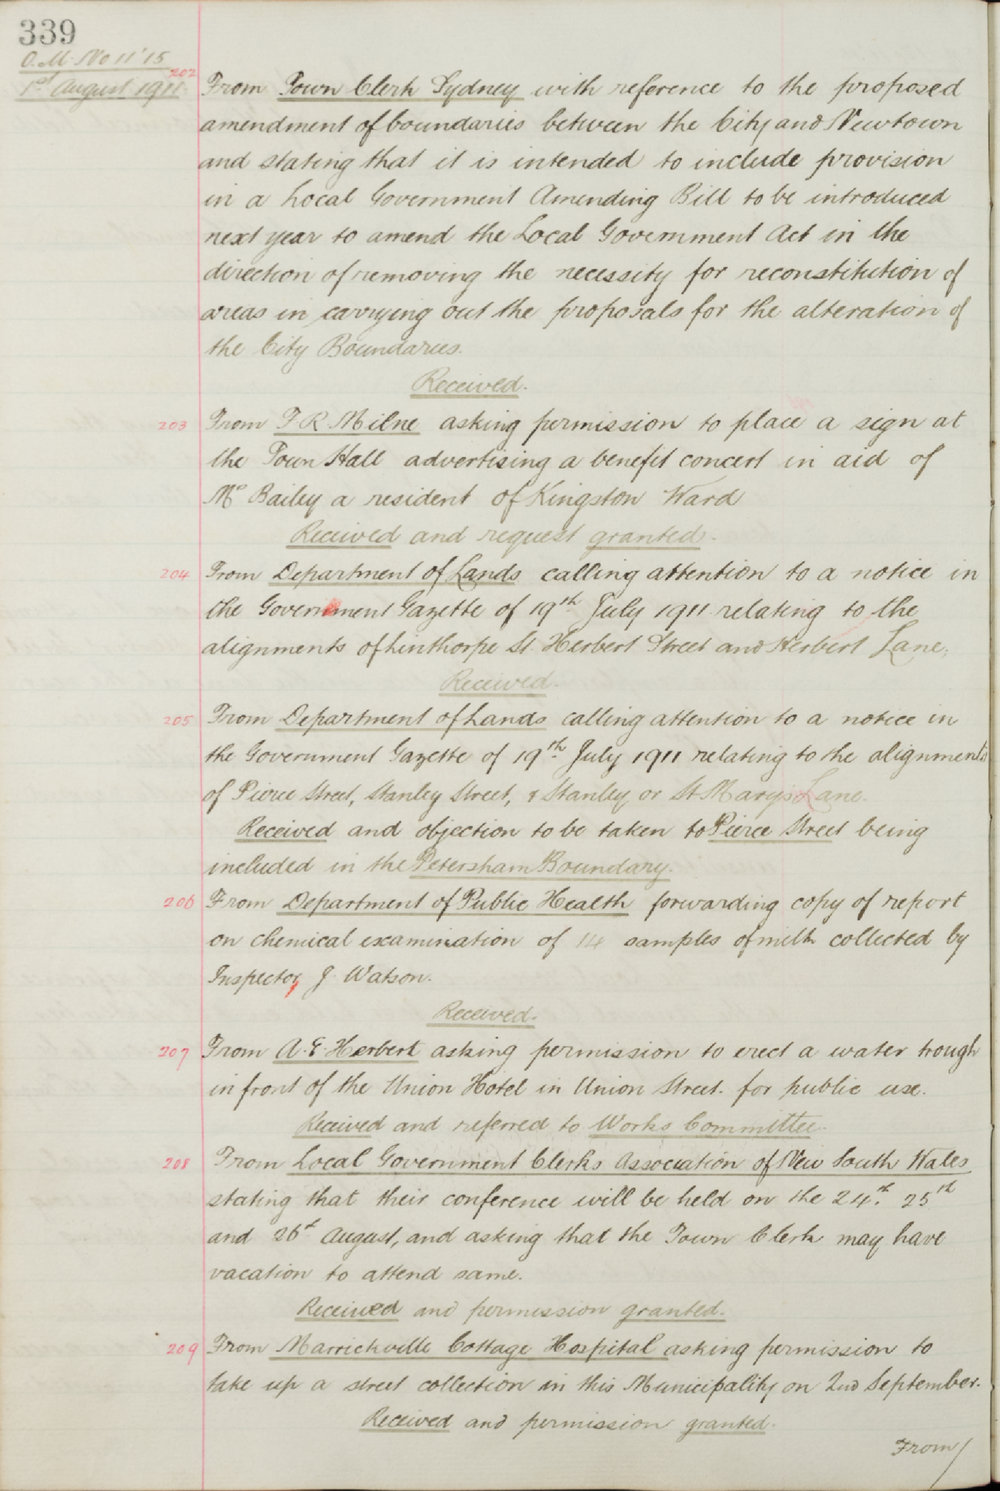 339
O.M. No 11 '15
1st August 1911
202 From Town Clerk Sydney with reference to the proposed
amendment of boundaries between the City and Newtown
and stating that it is intended to include provision
in a Local Government Amending Bill to be introduced
next year to amend the Local Government Act in the
direction of removing the necessity for reconstitution of
areas in carrying out the proposals for the alteration of
the City Boundaries.
Received.
203 From F R Milne asking permission to place a sign at
the Town Hall advertising a benefit concert in aid of
Mr Bailey a resident of Kingston Ward
Received and request granted.
204 From Department of Lands calling attention to a notice in
the Government Gazette of 19th July 1911 relating to the
alignments of Linthorpe St. Herbert Street and Herbert Lane.
Received.
205 From Department of Lands calling attention to a notice in
the Government Gazette of 19th July 1911 relating to the alignments
of Pierce Street, Stanley Street, & Stanley or St Mary's Lane.
Received and objection to be taken to Pierce Street being
included in the Petersham Boundary.
206 From Department of Public Health forwarding copy of report
on chemical examination of 14 samples of milk collected by
Inspector J. Watson.
Received.
207 From A. E. Herbert asking permission to erect a water trough
in front of the Union Hotel in Union Street. for public use.
Received and referred to Works Committee.
208 From Local Government Clerks Association of New South Wales
stating that their conference will be held on the 24th. 25th
and 26th August, and asking that the Town Clerk may have
vacation to attend same.
Received and permission granted.
209 From Marrickville Cottage Hospital asking permission to
take up a street collection in this Municipality on 2nd September.
Received and permission granted.
From/